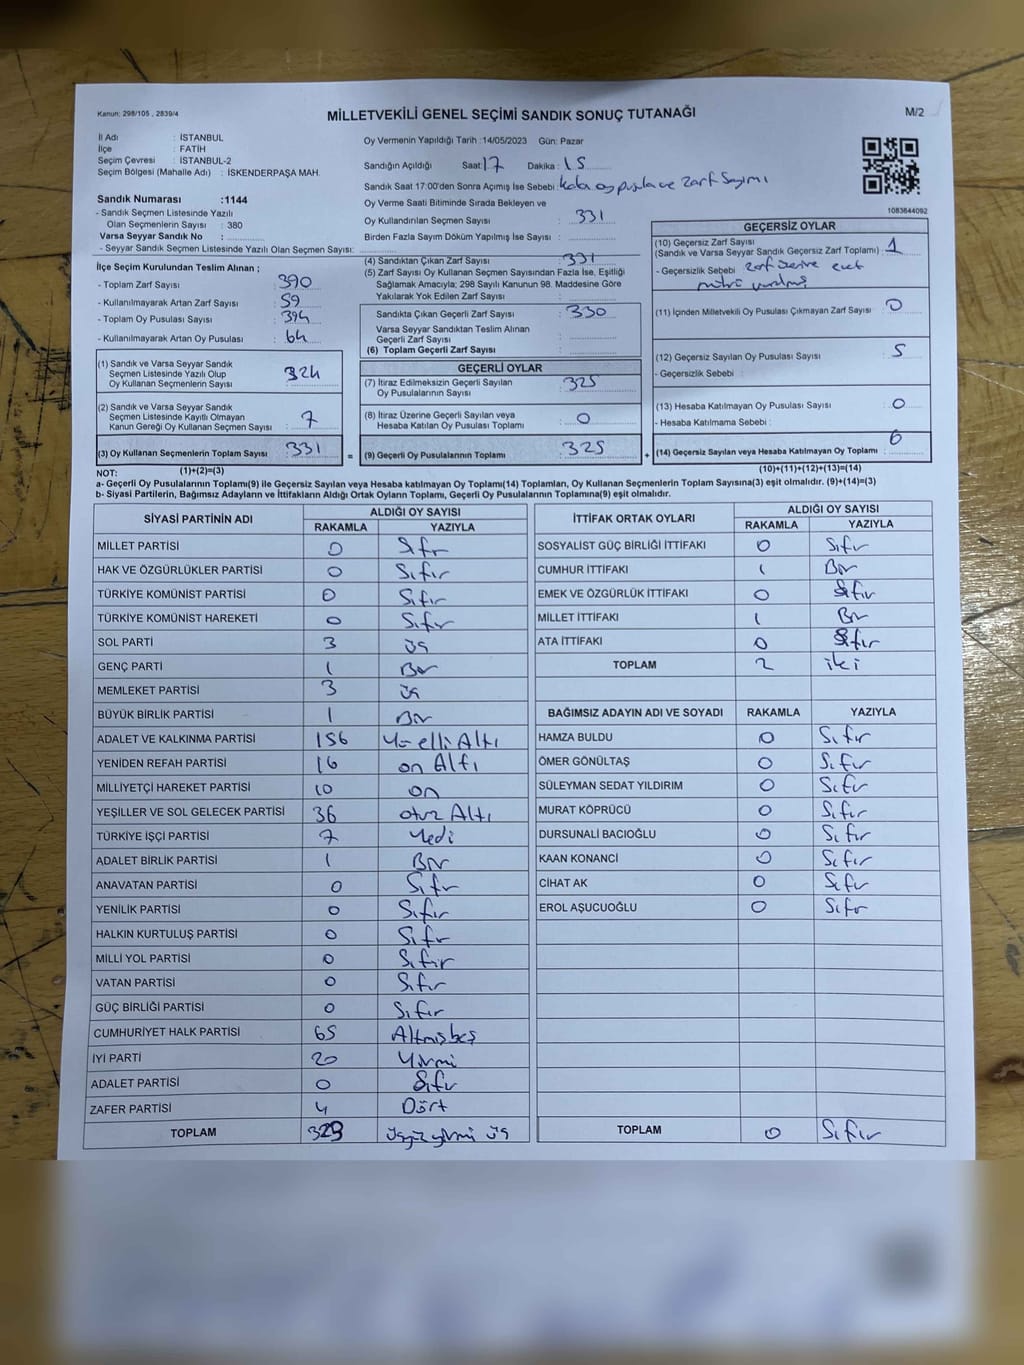 Kanun: 298/105 , 2839/4
MİLLETVEKİLİ GENEL SEÇİMİ SANDIK SONUÇ TUTANAĞI
M/2
İl Adı : İSTANBUL
İlçe : FATİH
Seçim Çevresi : İSTANBUL-2
Seçim Bölgesi (Mahalle Adı) : İSKENDERPAŞA MAH.
Oy Vermenin Yapıldığı Tarih :14/05/2023 Gün: Pazar
Sandığın Açıldığı Saat: 17 Dakika : 15
Sandık Saat 17:00'den Sonra Açımış İse Sebebi : kala oy pusula ve zarf sayımı
Oy Verme Saati Bitiminde Sırada Bekleyen ve
Oy Kullandırılan Seçmen Sayısı : 331
Birden Fazla Sayım Döküm Yapılmış İse Sayısı :
1083644092
Sandık Numarası :1144
- Sandık Seçmen Listesinde Yazılı
Olan Seçmenlerin Sayısı : 380
Varsa Seyyar Sandık No :
- Seyyar Sandık Seçmen Listesinde Yazılı Olan Seçmen Sayısı:
İlçe Seçim Kurulundan Teslim Alınan ;
- Toplam Zarf Sayısı : 390
- Kullanılmayarak Artan Zarf Sayısı : 59
- Toplam Oy Pusulası Sayısı : 394
- Kullanılmayarak Artan Oy Pusulası : 64
(1) Sandık ve Varsa Seyyar Sandık
Seçmen Listesinde Yazılı Olup
Oy Kullanan Seçmenlerin Sayısı : 324
(2) Sandık ve Varsa Seyyar Sandık
Seçmen Listesinde Kayıtlı Olmayan
Kanun Gereği Oy Kullanan Seçmen Sayısı : 7
(3) Oy Kullanan Seçmenlerin Toplam Sayısı : 331 =
(4) Sandıktan Çıkan Zarf Sayısı : 331
(5) Zarf Sayısı Oy Kullanan Seçmen Sayısından Fazla İse, Eşitliği
Sağlamak Amacıyla; 298 Sayılı Kanunun 98. Maddesine Göre
Yakılarak Yok Edilen Zarf Sayısı :
Sandıkta Çıkan Geçerli Zarf Sayısı : 330
Varsa Seyyar Sandıktan Teslim Alınan
Geçerli Zarf Sayısı :
(6) Toplam Geçerli Zarf Sayısı :
GEÇERLİ OYLAR
(7) İtiraz Edilmeksizin Geçerli Sayılan
Oy Pusulalarının Sayısı : 325
(8) İtiraz Üzerine Geçerli Sayılan veya
Hesaba Katılan Oy Pusulası Toplamı : 0
(9) Geçerli Oy Pusulalarının Toplamı : 325 +
GEÇERSİZ OYLAR
(10) Geçersiz Zarf Sayısı
(Sandık ve Varsa Seyyar Sandık Geçersiz Zarf Toplamı) : 1
- Geçersizlik Sebebi : zarf üzerine evet
mührü vurulmuş
(11) İçinden Milletvekili Oy Pusulası Çıkmayan Zarf Sayısı : 0
(12) Geçersiz Sayılan Oy Pusulası Sayısı : 5
- Geçersizlik Sebebi :
(13) Hesaba Katılmayan Oy Pusulası Sayısı : 0
- Hesaba Katılmama Sebebi :
(14) Geçersiz Sayılan veya Hesaba Katılmayan Oy Toplamı : 6
NOT: (1)+(2)=(3) (10)+(11)+(12)+(13)=(14)
a- Geçerli Oy Pusulalarının Toplamı(9) ile Geçersiz Sayılan veya Hesaba katılmayan Oy Toplamı(14) Toplamları, Oy Kullanan Seçmenlerin Toplam Sayısına(3) eşit olmalıdır. (9)+(14)=(3)
b- Siyasi Partilerin, Bağımsız Adayların ve İttifakların Aldığı Ortak Oyların Toplamı, Geçerli Oy Pusulalarının Toplamına(9) eşit olmalıdır.
SİYASİ PARTİNİN ADI ALDIĞI OY SAYISI
RAKAMLA YAZIYLA
MİLLET PARTİSİ 0 Sıfır
HAK VE ÖZGÜRLÜKLER PARTİSİ 0 Sıfır
TÜRKİYE KOMÜNİST PARTİSİ 0 Sıfır
TÜRKİYE KOMÜNİST HAREKETİ 0 Sıfır
SOL PARTİ 3 üç
GENÇ PARTİ 1 Bir
MEMLEKET PARTİSİ 3 üç
BÜYÜK BİRLİK PARTİSİ 1 Bir
ADALET VE KALKINMA PARTİSİ 156 Yüz elli Altı
YENİDEN REFAH PARTİSİ 16 on Altı
MİLLİYETÇİ HAREKET PARTİSİ 10 on
YEŞİLLER VE SOL GELECEK PARTİSİ 36 otuz Altı
TÜRKİYE İŞÇİ PARTİSİ 7 Yedi
ADALET BİRLİK PARTİSİ 1 Bir
ANAVATAN PARTİSİ 0 Sıfır
YENİLİK PARTİSİ 0 Sıfır
HALKIN KURTULUŞ PARTİSİ 0 Sıfır
MİLLİ YOL PARTİSİ 0 Sıfır
VATAN PARTİSİ 0 Sıfır
GÜÇ BİRLİĞİ PARTİSİ 0 Sıfır
CUMHURİYET HALK PARTİSİ 65 Altmışbeş
İYİ PARTİ 20 Yirmi
ADALET PARTİSİ 0 Sıfır
ZAFER PARTİSİ 4 Dört
TOPLAM 323 üçyüz yirmi üç
İTTİFAK ORTAK OYLARI ALDIĞI OY SAYISI
RAKAMLA YAZIYLA
SOSYALİST GÜÇ BİRLİĞİ İTTİFAKI 0 Sıfır
CUMHUR İTTİFAKI 1 Bir
EMEK VE ÖZGÜRLÜK İTTİFAKI 0 Sıfır
MİLLET İTTİFAKI 1 Bir
ATA İTTİFAKI 0 Sıfır
TOPLAM 2 iki
BAĞIMSIZ ADAYIN ADI VE SOYADI RAKAMLA YAZIYLA
HAMZA BULDU 0 Sıfır
ÖMER GÖNÜLTAŞ 0 Sıfır
SÜLEYMAN SEDAT YILDIRIM 0 Sıfır
MURAT KÖPRÜCÜ 0 Sıfır
DURSUNALİ BACIOĞLU 0 Sıfır
KAAN KONANCİ 0 Sıfır
CİHAT AK 0 Sıfır
EROL AŞUCUOĞLU 0 Sıfır
TOPLAM 0 Sıfır